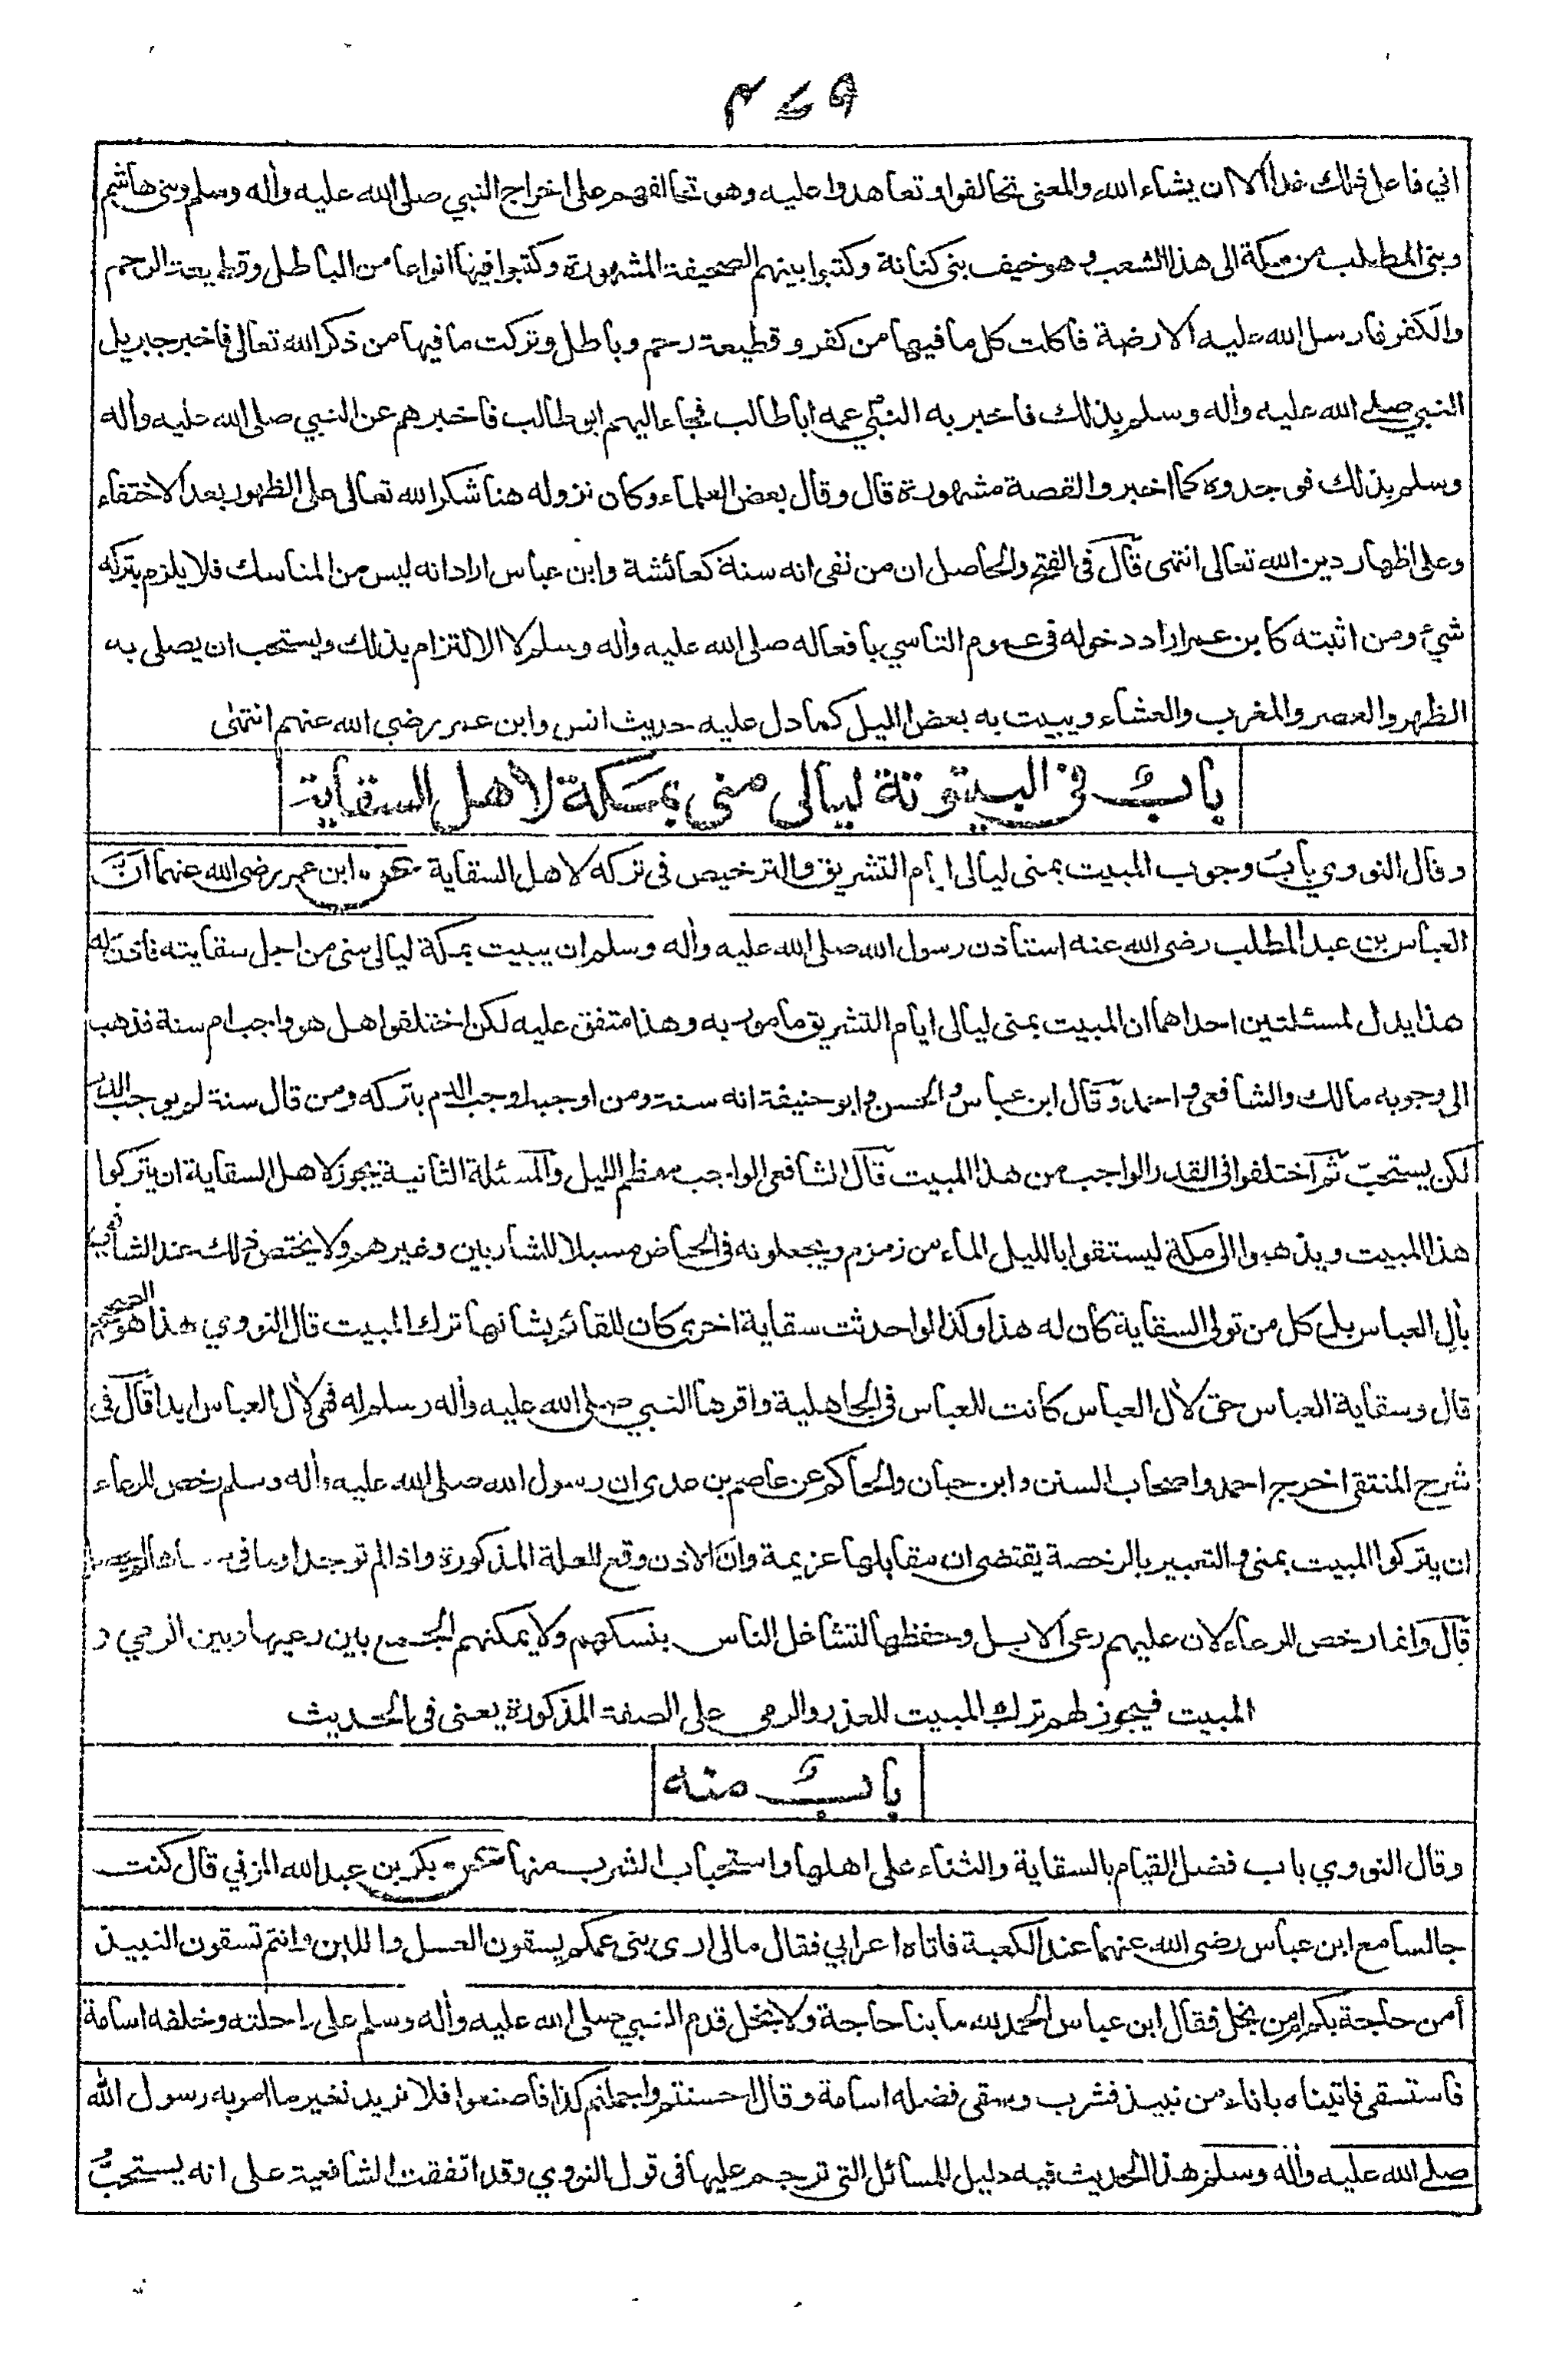 اني فاعل ذلك غدا الا ان يشاء الله والمعنى تحالفوا وتعاهدوا عليه وهو تحالفهم على اخراج النبي صلى الله عليه وأله وسلم وبنى هاشم
وبنى المطلب من مكة الى هذا الشعب وهو خيف بنى كنانة وكتبوا بينهم الصحيفة المشهورة وكتبوا فيها انواعا من الباطل وقطيعة الرحم
والكفر فارسل الله عليه الارضة فاكلت كل ما فيها من كفر وقطيعة رحم وباطل وتركت ما فيها من ذكر الله تعالى فاخبر جبريل
النبي صلى الله عليه وأله وسلم بذلك فاخبر به النبي عمه ابا طالب فجاء اليهم ابو طالب فاخبرهم عن النبي صلى الله عليه وأله
وسلم بذلك فوجدوه كما اخبر والقصة مشهورة قال وقال بعض العلماء وكان نزوله هنا شكرا لله تعالى على الظهور بعد الاختفاء
وعلى اظهار دين الله تعالى انتهى قال فى الفتح والحاصل ان من نفى انه سنة كعائشة وابن عباس اراد انه ليس من المناسك فلا يلزم بتركه
شيئ ومن اثبته كابن عمر اراد دخوله فى عموم التاسي بافعاله صلى الله عليه وأله وسلم لا الالتزام بذلك ويستحب ان يصلى به
الظهر والعصر والمغرب والعشاء ويبيت به بعض الليل كما دل عليه حديث انس وابن عمر رضي الله عنهم انتهى
باب فى البيتوتة ليالى منى بمكة لاهل السقاية
وقال النووي باب وجوب المبيت بمنى ليالى ايام التشريق والترخيص فى تركه لاهل السقاية عن ابن عمر رضى الله عنهما ان
العباس بن عبد المطلب رضى الله عنه استاذن رسول الله صلى الله عليه وأله وسلم ان يبيت بمكة ليالى منى من اجل سقايته فاذن له
هذا يدل لمسئلتين احداهما ان المبيت بمنى ليالى ايام التشريق مامور به وهذا متفق عليه لكن اختلفوا هل هو واجب ام سنة فذهب
الى وجوبه مالك والشافعى واحمد وقال ابن عباس والحسن وابو حنيفة انه سنة ومن اوجبه اوجب الدم بتركه ومن قال سنة لم يوجب الدم
لكن يستحب ثم اختلفوا فى القدر الواجب من هذا المبيت قال الشافعى الواجب معظم الليل والمسئلة الثانية يجوز لاهل السقاية ان يتركوا
هذا المبيت ويذهبوا الى مكة ليستقوا بالليل الماء من زمزم ويجعلونه فى الحياض مسبلا للشاربين وغيرهم ولا يختص ذلك عند الشافعي
بأل العباس بل كل من تولى السقاية كان له هذا وكذا لو احدثت سقاية اخرى كان للقائم بشانها ترك المبيت قال النووي هذا هو الصحيح
قال وسقاية العباس حق لأل العباس كانت للعباس فى الجاهلية واقرها النبي صلى الله عليه وأله وسلم له فهى لأل العباس ابدا قال فى
شرح المنتقى اخرج احمد واصحاب السنن وابن حبان والحاكم عن عاصم بن عدى ان رسول الله صلى الله عليه وأله وسلم رخص للرعاء
ان يتركوا المبيت بمنى والتعبير بالرخصة يقتضى ان مقابلها عزيمة وان الاذن وقع للعلة المذكورة واذا لم توجد او ما فى
قال وانما رخص للرعاء لان عليهم رعى الابل وحفظها لتشاغل الناس بنسكهم ولا يمكنهم الجمع بين رعيها وبين الرمي و
المبيت فيجوز لهم ترك المبيت للعذر والرمى على الصفة المذكورة يعنى فى الحديث
باب منه
وقال النووي باب فضل القيام بالسقاية والثناء على اهلها واستحباب الشرب منها عن بكر بن عبد الله المزني قال كنت
جالسا مع ابن عباس رضى الله عنهما عند الكعبة فاتاه اعرابي فقال مالى ارى بنى عمكم يسقون العسل واللبن وانتم تسقون النبيذ
أمن حاجة بكم ام من بخل فقال ابن عباس الحمد لله ما بنا حاجة ولا بخل قدم النبي صلى الله عليه وأله وسلم على راحلته وخلفه اسامة
فاستسقى فاتيناه باناء من نبيذ فشرب وسقى فضله اسامة وقال احسنتم واجملتم كذا فاصنعوا فلا نريد تغير ما امر به رسول الله
صلى الله عليه وأله وسلم هذا الحديث فيه دليل للمسائل التى ترجم عليها فى قول النووي وقد اتفقت الشافعية على انه يستحب